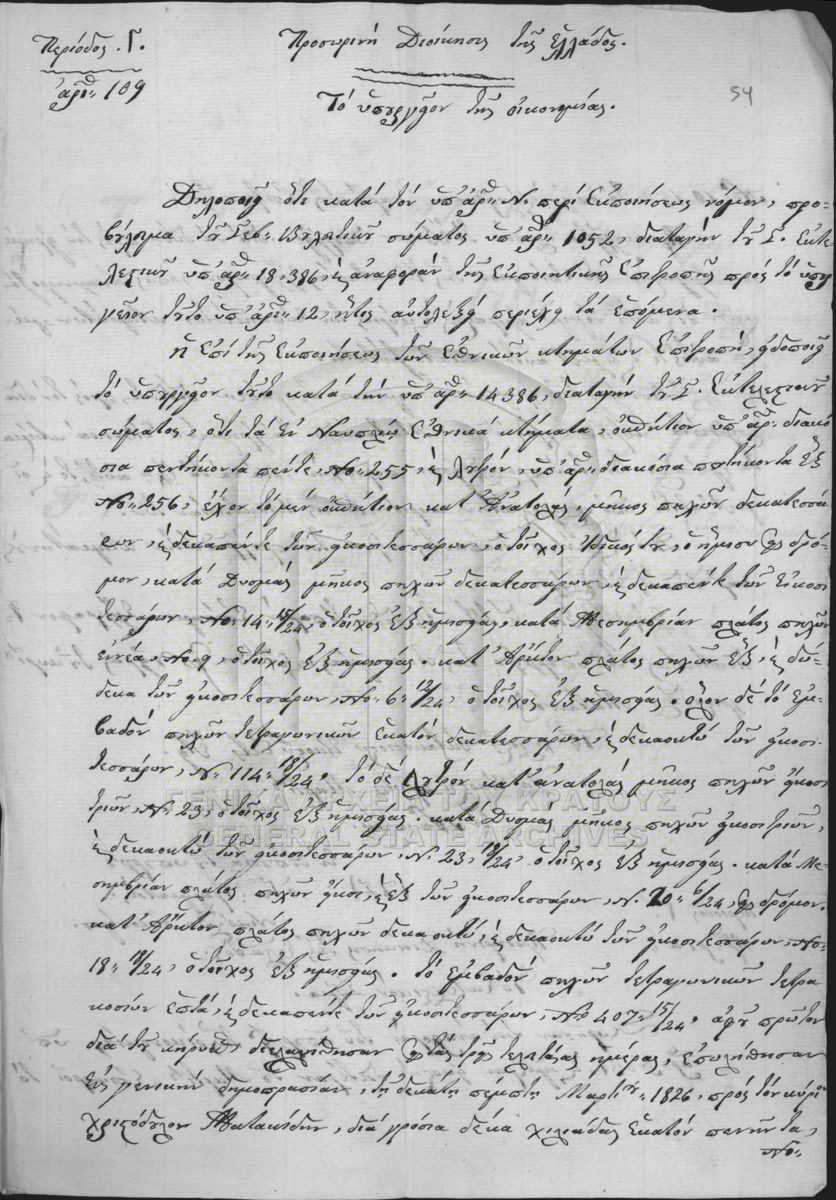 Περίοδος. Γ.
ἀριθ: 109
Προσωρινὴ Διοίκησις τῆς Ἑλλάδος.
54
Τὸ ὑπουργεῖον τῆς οἰκονομίας.
Δηλοποιεῖ ὅτι κατὰ τὸν ὑπ' ἀριθ: Ν: περὶ ἐκποιήσεως νόμον, προ-
βούλευμα τοῦ Σεβ: Βουλευτικοῦ σώματος ὑπ' ἀριθ: 1052, διαταγὴν τοῦ Σ. Ἐκτε-
λεστικοῦ ὑπ' ἀριθ: 18,386, καὶ ἀναφορὰν τῆς ἐκποιητικῆς ἐπιτροπῆς πρὸς τὸ ὑπουρ
γεῖον τοῦτο ὑπ' ἀριθ: 12, ἥτις αὐτολεξεὶ περιέχει τὰ ἑπόμενα.
ἡ ἐπὶ τῆς ἐκποιήσεως τῶν ἐθνικῶν κτημάτων ἐπιτροπή, εἰδοποιεῖ
τὸ ὑπουργεῖον τοῦτο κατὰ τὴν ὑπ' ἀριθ: 14386, διαταγὴν τοῦ Σ. Ἐκτελεστικοῦ
σώματος, ὅτι τὰ ἐν Ναυπλίῳ ἐθνικὰ κτήματα, ὀσπήτιον ὑπ' ἀριθ: διακό
σια πεντήκοντα πέντε, Νο: 255, καὶ λυτρόν, ὑπ' ἀριθ: διακόσια πεντήκοντα ἓξ
Νο: 256, ἔχον τὸ μὲν ὀσπήτιον κατ' Ἀνατολάς, μῆκος πηχῶν δεκατεσσά
ρων, καὶ δεκαπέντε τῶν εἰκοσιτεσσάρων, ὁ τοῖχος ἰδικός του, ὁ ἥμισυ εἰς δρό-
μον, κατὰ Δυσμὰς μῆκος πηχῶν δεκατεσσάρων, καὶ δεκαπέντε τῶν εἰκοσι
τεσσάρων, Νο: 14 15/24, ὁ τοῖχος ἐξ ἡμισείας, κατὰ Μεσημβρίαν πλάτος πηχῶν
ἐννέα, Νο. 9, ὁ τοῖχος ἐξ ἡμισείας. κατ' Ἄρκτον πλάτος πηχῶν ἓξ, καὶ δώ-
δεκα τῶν εἰκοσιτεσσάρων, Νο: 6 12/24, ὁ τοῖχος ἐξ ἡμισείας. ὅλον δὲ τὸ ἐμ-
βαδὸν πηχῶν τετραγωνικῶν ἑκατὸν δεκατεσσάρων, καὶ δεκαοκτὼ τῶν εἰκοσι
τεσσάρων, Ν: 114 18/24. τὸ δὲ Λυτρὸν κατ' ἀνατολὰς μῆκος πηχῶν εἰκοσι
τριῶν, Ν: 23, ὁ τοῖχος ἐξ ἡμισείας. κατὰ Δυσμὰς μῆκος πηχῶν εἰκοσιτριῶν,
καὶ δεκαοκτὼ τῶν εἰκοσιτεσσάρων, Ν. 23, 18/24, ὁ τοῖχος ἐξ ἡμισείας. κατὰ Με-
σημβρίαν πλάτος πηχῶν εἴκοσι, καὶ ἓξ τῶν εἰκοσιτεσσάρων, Ν. 20 6/24, εἰς δρόμον.
κατ' Ἄρκτον πλάτος πηχῶν δεκαοκτώ, καὶ δεκαοκτὼ τῶν εἰκοσιτεσσάρων, Νο:
18 18/24, ὁ τοῖχος ἐξ ἡμισείας. τὸ ἐμβαδὸν πηχῶν τετραγωνικῶν τετρα
κοσίων ἑπτά, καὶ δεκαπέντε τῶν εἰκοσιτεσσάρων, Νο 407 15/24, ἀφ' οὗ πρῶτον
διὰ τοῦ κήρυκος διελαλήθησαν εἰς τὰς τρεῖς τελευταίας ἡμέρας, ἐπωλήθησαν
εἰς γενικὴν δημοπρασίαν, τῇ δεκάτῃ πέμπτῃ Μαρτίου 1826, πρὸς τὸν κύριον
Χριστόδουλον, διὰ γρόσια δέκα χιλιάδας ἑκατὸν πενῆντα,
Νο:
ΓΕΝΙΚΑ ΑΡΧΕΙΑ ΤΟΥ ΚΡΑΤΟΥΣ
GENERAL STATE ARCHIVES